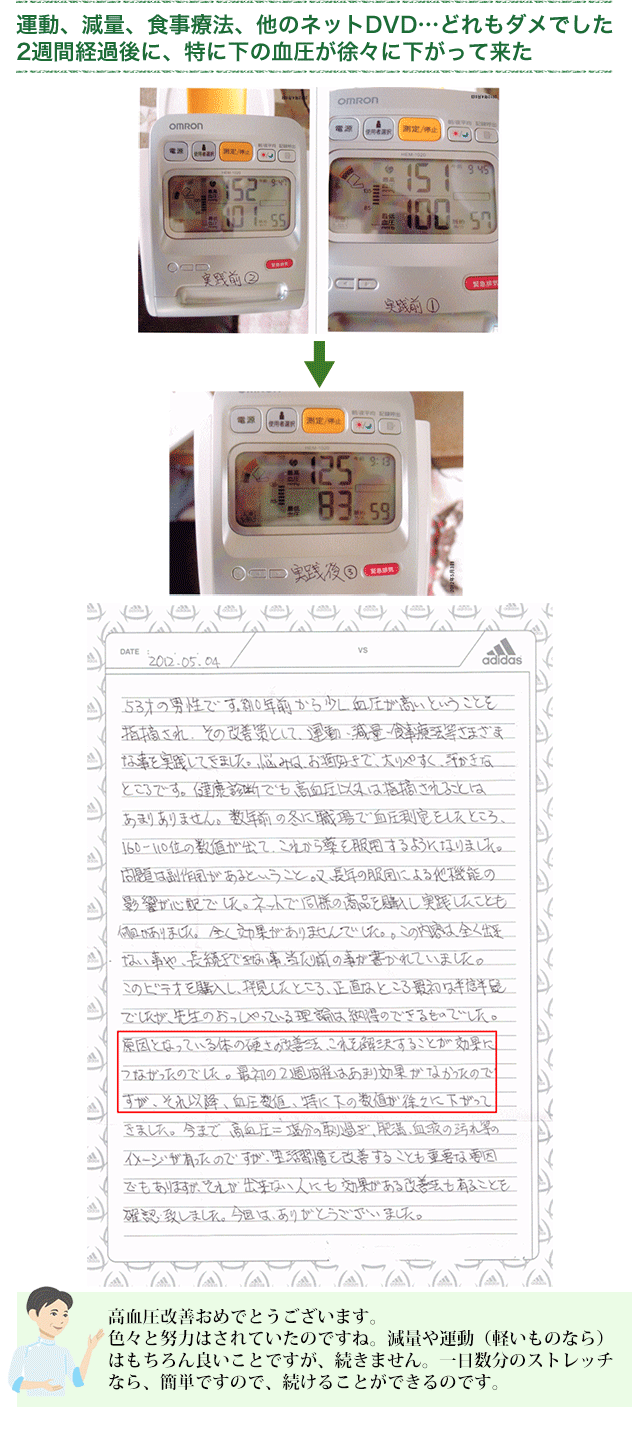 運動、減量、食事療法、他のネットDVD…どれもダメでした
2週間経過後に、特に下の血圧が徐々に下がって来た
OMRON
電源 使用者選択 測定/停止
152 9:47
101 55
緊急排気
実践前②
OMRON
電源 使用者選択 測定/停止
151 9:45
100 57
緊急排気
実践前①
OMRON
電源 使用者選択 測定/停止
125 9:13
83 59
実践後③ 緊急排気
DATE : 2012.05.04 VS adidas
53才の男性です。約10年前から少し血圧が高いということを
指摘され、その改善策として、運動・減量・食事療法等さまざま
な事を実践してきました。悩みは、お酒好きで、太りやすく、汗かきな
ところです。健康診断でも高血圧以外は指摘されることは
あまりありません。数年前の冬に職場で血圧測定をしたところ、
160-110位の数値が出て、これから薬を服用するようになりました。
問題は副作用があるということ。又、長年の服用による他機能の
影響が心配でした。ネットで同様の商品を購入し実践したことも
何回かありました。全く効果がありませんでした。この内容は全く出来
ない事や、長続きできない事、当たり前の事が書かれていました。
このビデオを購入し、拝見したところ、正直なところ最初は半信半疑
でしたが、先生のおっしゃっている理論は納得のできるものでした。
原因となっている体の硬さの改善法、これを解決することが効果に
つながったのでした。最初の2週間はあまり効果がなかったので
すが、それ以降、血圧数値、特に下の数値が徐々に下がって
きました。今まで高血圧=塩分の取り過ぎ、肥満、血液の汚れ等の
イメージが有ったのですが、生活習慣を改善することも重要な要因
でもありますが、それが出来ない人にも効果がある改善法も有ることを
確認致しました。今回は、ありがとうございました。
高血圧改善おめでとうございます。
色々と努力はされていたのですね。減量や運動（軽いものなら）
はもちろん良いことですが、続きません。一日数分のストレッチ
なら、簡単ですので、続けることができるのです。